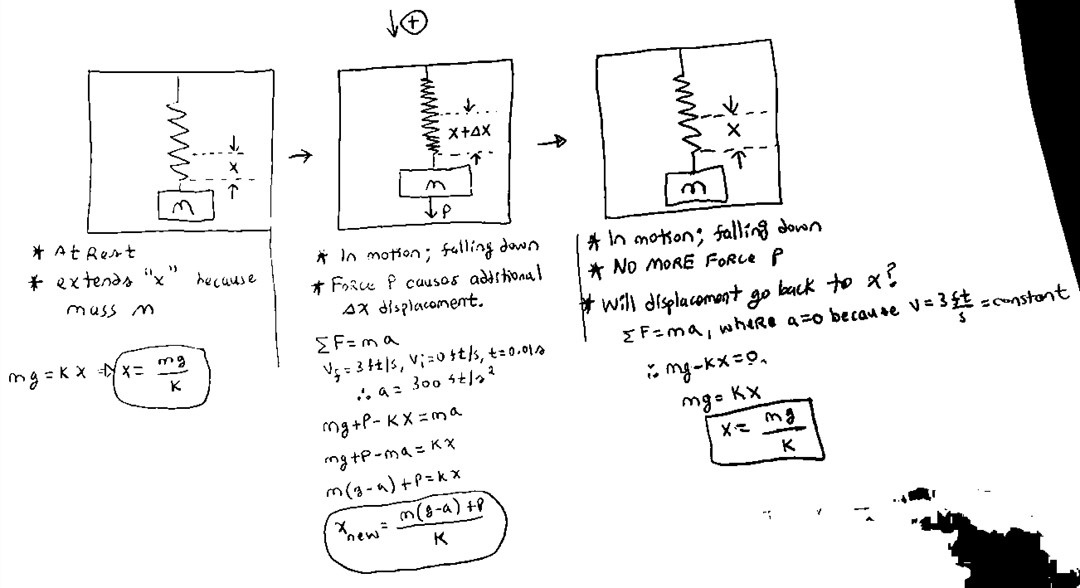 ↓ +
x
m
→
x+Δx
m
P
→
x
m
* At Rest
* extends "x" because
mass m
mg = Kx ⇒ x = mg/K
* In motion; falling down
* Force P causes additional
Δx displacement.
ΣF = ma
Vf = 3 ft/s, Vi = 0 ft/s, t = 0.01s
∴ a = 300 ft/s²
mg+P-Kx=ma
mg+P-ma=Kx
m(g-a)+P=Kx
xnew = m(g-a)+P/K
* In motion; falling down
* NO MORE FORCE P
* Will displacement go back to x?
ΣF=ma, where a=0 because V=3 ft/s = constant
∴ mg-Kx=0.
mg= Kx
x= mg/K